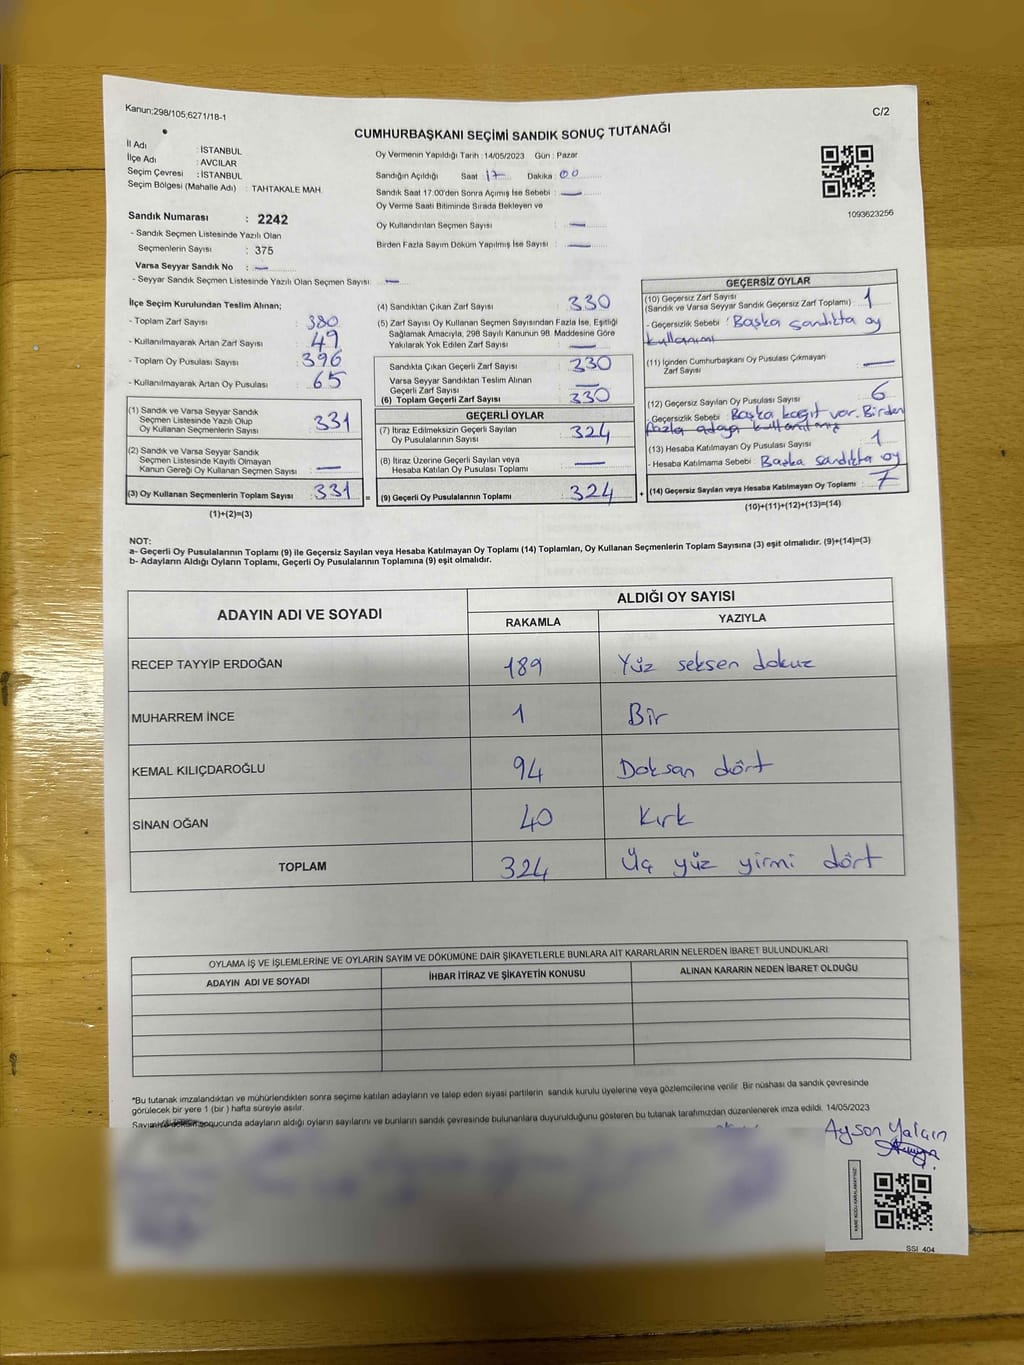 Kanun:298/105;6271/18-1
C/2
CUMHURBAŞKANI SEÇİMİ SANDIK SONUÇ TUTANAĞI
İl Adı : İSTANBUL
İlçe Adı : AVCILAR
Seçim Çevresi : İSTANBUL
Seçim Bölgesi (Mahalle Adı) : TAHTAKALE MAH.
Sandık Numarası : 2242
- Sandık Seçmen Listesinde Yazılı Olan
Seçmenlerin Sayısı : 375
Varsa Seyyar Sandık No : —
- Seyyar Sandık Seçmen Listesinde Yazılı Olan Seçmen Sayısı: —
Oy Vermenin Yapıldığı Tarih : 14/05/2023 Gün : Pazar
Sandığın Açıldığı Saat : 17 Dakika : 00
Sandık Saat 17:00'den Sonra Açılmış İse Sebebi : —
Oy Verme Saati Bitiminde Sırada Bekleyen ve
Oy Kullandırılan Seçmen Sayısı : —
Birden Fazla Sayım Döküm Yapılmış İse Sayısı : —
1093623256
İlçe Seçim Kurulundan Teslim Alınan;
- Toplam Zarf Sayısı : 380
- Kullanılmayarak Artan Zarf Sayısı : 49
- Toplam Oy Pusulası Sayısı : 396
- Kullanılmayarak Artan Oy Pusulası : 65
(1) Sandık ve Varsa Seyyar Sandık
Seçmen Listesinde Yazılı Olup
Oy Kullanan Seçmenlerin Sayısı : 331
(2) Sandık ve Varsa Seyyar Sandık
Seçmen Listesinde Kayıtlı Olmayan
Kanun Gereği Oy Kullanan Seçmen Sayısı : —
(3) Oy Kullanan Seçmenlerin Toplam Sayısı : 331 =
(1)+(2)=(3)
(4) Sandıktan Çıkan Zarf Sayısı : 330
(5) Zarf Sayısı Oy Kullanan Seçmen Sayısından Fazla İse, Eşitliği
Sağlamak Amacıyla, 298 Sayılı Kanunun 98. Maddesine Göre
Yakılarak Yok Edilen Zarf Sayısı : —
Sandıkta Çıkan Geçerli Zarf Sayısı : 330
Varsa Seyyar Sandıktan Teslim Alınan
Geçerli Zarf Sayısı : —
(6) Toplam Geçerli Zarf Sayısı : 330
GEÇERLİ OYLAR
(7) İtiraz Edilmeksizin Geçerli Sayılan
Oy Pusulalarının Sayısı : 324
(8) İtiraz Üzerine Geçerli Sayılan veya
Hesaba Katılan Oy Pusulası Toplamı : —
(9) Geçerli Oy Pusulalarının Toplamı : 324 +
GEÇERSİZ OYLAR
(10) Geçersiz Zarf Sayısı
(Sandık ve Varsa Seyyar Sandık Geçersiz Zarf Toplamı) : 1
- Geçersizlik Sebebi : Başka sandıkta oy
kullanımı
(11) İçinden Cumhurbaşkanı Oy Pusulası Çıkmayan
Zarf Sayısı : —
(12) Geçersiz Sayılan Oy Pusulası Sayısı : 6
- Geçersizlik Sebebi : Başka kağıt var. Birden
fazla adaya kullanılmış
(13) Hesaba Katılmayan Oy Pusulası Sayısı : 1
- Hesaba Katılmama Sebebi : Başka sandıkta oy
(14) Geçersiz Sayılan veya Hesaba Katılmayan Oy Toplamı : 7
(10)+(11)+(12)+(13)=(14)
NOT:
a- Geçerli Oy Pusulalarının Toplamı (9) ile Geçersiz Sayılan veya Hesaba Katılmayan Oy Toplamı (14) Toplamları, Oy Kullanan Seçmenlerin Toplam Sayısına (3) eşit olmalıdır. (9)+(14)=(3)
b- Adayların Aldığı Oyların Toplamı, Geçerli Oy Pusulalarının Toplamına (9) eşit olmalıdır.
ADAYIN ADI VE SOYADI ALDIĞI OY SAYISI
RAKAMLA YAZIYLA
RECEP TAYYİP ERDOĞAN 189 Yüz seksen dokuz
MUHARREM İNCE 1 Bir
KEMAL KILIÇDAROĞLU 94 Doksan dört
SİNAN OĞAN 40 Kırk
TOPLAM 324 Üç yüz yirmi dört
OYLAMA İŞ VE İŞLEMLERİNE VE OYLARIN SAYIM VE DÖKÜMÜNE DAİR ŞİKAYETLERLE BUNLARA AİT KARARLARIN NELERDEN İBARET BULUNDUKLARI
ADAYIN ADI VE SOYADI İHBAR İTİRAZ VE ŞİKAYETİN KONUSU ALINAN KARARIN NEDEN İBARET OLDUĞU
*Bu tutanak imzalandıktan ve mühürlendikten sonra seçime katılan adayların ve talep eden siyasi partilerin sandık kurulu üyelerine veya gözlemcilerine verilir. Bir nüshası da sandık çevresinde
görülecek bir yere 1 (bir) hafta süreyle asılır.
sonucunda adayların aldığı oyların sayılarını ve bunların sandık çevresinde bulunanlara duyurulduğunu gösteren bu tutanak tarafımızdan düzenlenerek imza edildi. 14/05/2023
Yalçın
SSI 404